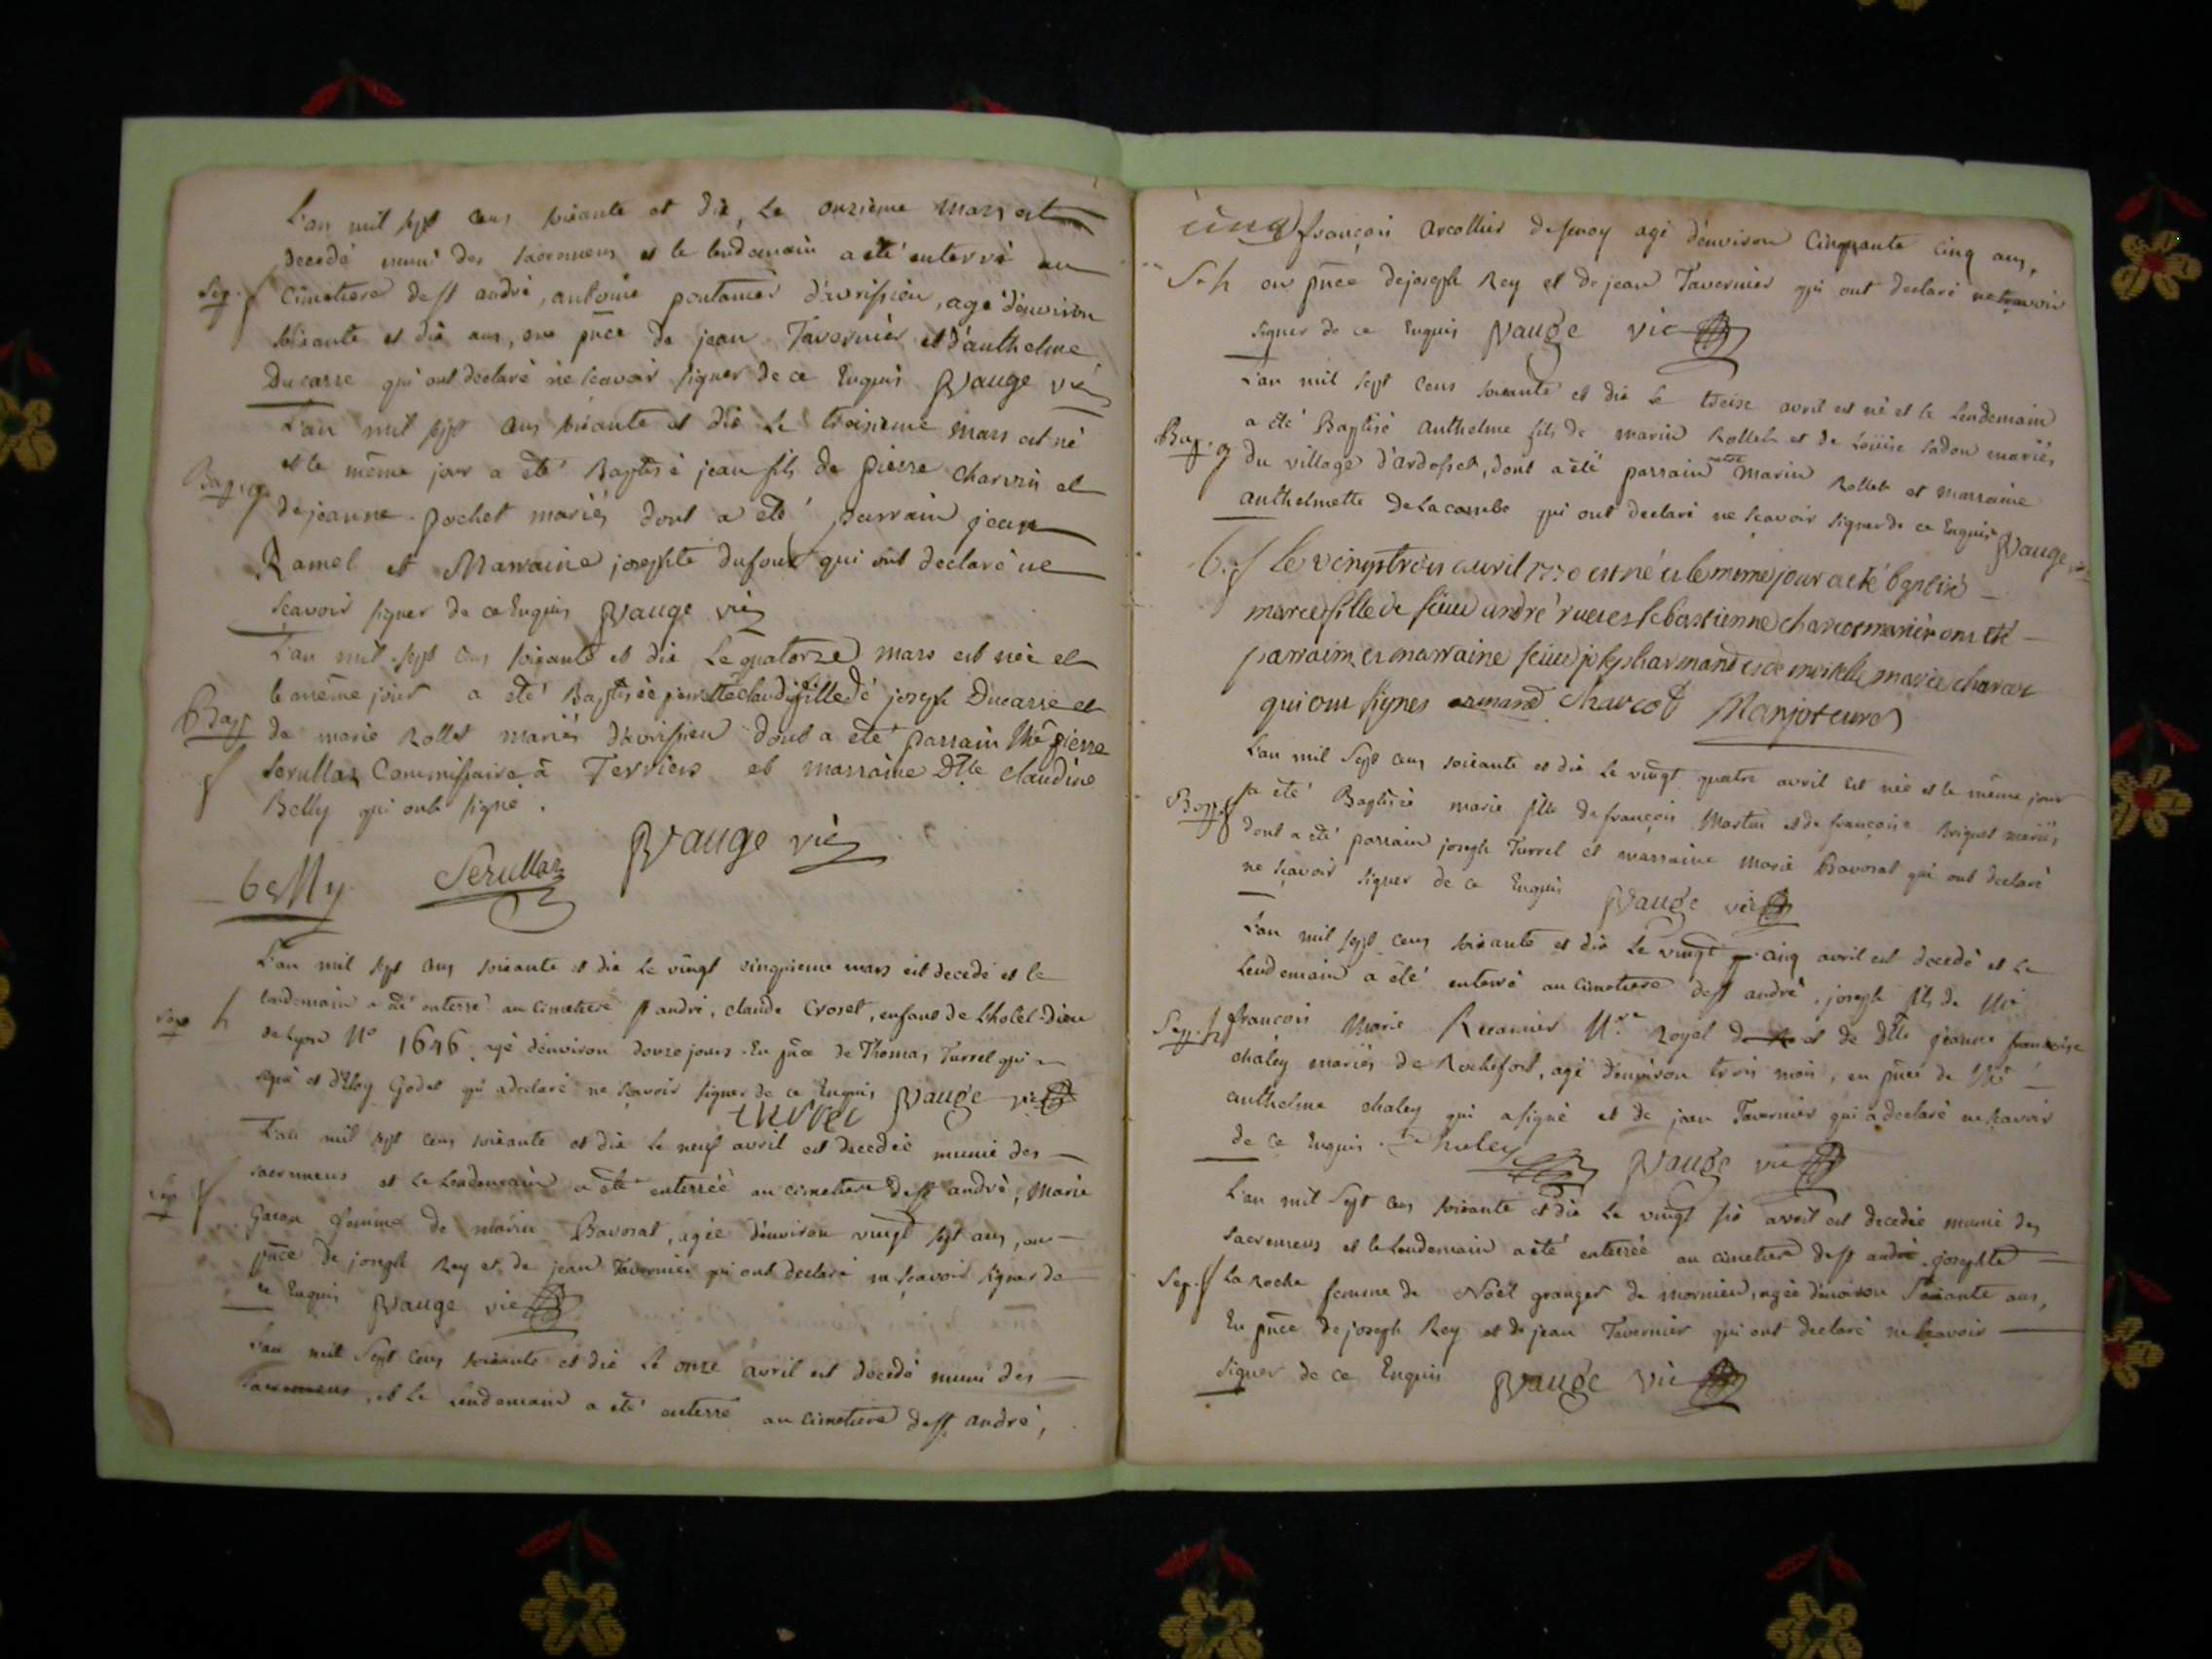 L'an mil sept cens soixante et dix, Le onzieme mars est
decedé muni des sacremens et le lendemain a été enterré au
Sep. cimetiere de st andré, antoine pontanier d'avrissieu, agé d'environ
soixante et dix ans, en pnce de jean Tavernier et d'anthelme
Ducarre qui ont declaré ne scavoir signer de ce Enquis Vauge vic
L'an mil sept cens soixante et dix Le troisieme mars est né
et le même jour a été Baptisé jean fils de pierre charvin et
Bap. g de jeanne pochet mariés dont a été parrain jean
Ramel et Marraine josephte dufour qui ont declaré ne
scavoir signer de ce Enquis Vauge vic
L'an mil sept cens soixante et dix Le quatorze mars est née et
le même jour a été Baptisée pierrette claudine fille de joseph Ducarre et
Bap f de marie Rollet mariés d'avrissieu dont a été parrain Me pierre
Serullaz Commissaire à Terriers et marraine Dlle claudine
Belly qui ont signé.
Vauge vic
belly Serullaz
L'an mil sept cens soixante et dix Le vingt cinquieme mars est decedé et le
lendemain a été enterré au cimetiere st andré, claude Croset, enfant de Lhotel-Dieu
Sep h de Lyon No 1646, agé d'environ douze jours. En pnce de Thomas Turrel qui a
signé et d'Eloy Godet qui a declaré ne scavoir signer de ce Enquis Vauge vic
turrel
L'an mil sept cens soixante et dix Le neuf avril est decedée munie des
sacremens et Le Lendemain a été enterrée au cimetiere de st andré, Marie
Sep f femme de marin Bavosat, agée d'environ vingt sept ans, en
pnce de joseph Rey et de jean Tavernier qui ont declaré ne scavoir signer de
ce Enquis Vauge vic
L'an mil Sept cens soixante et dix Le onze avril est decedé muni des
sacremens, et Le Lendemain a été enterré au cimetiere de st andré,
cinq françois arcollier agé d'environ Cinquante cinq ans,
Seh en pnce de joseph Rey et de jean Tavernier qui ont declaré ne scavoir
signer de ce Enquis Vauge vic
L'an mil sept cens soixante et dix le treize avril est né et le Lendemain
a été Baptisé anthelme fils de marin Rollet et de Loüise Sadou mariés
Bap. g du village d'ardosset, dont a été parrain autre Marin Rollet et marraine
anthelmette de Lacombe qui ont declaré ne scavoir signer de ce Enquis Vauge vic
b. f le vingtrois auril 1770 est né et le meme jour a eté baptisé
marie fille de sieur andré ruet et sebastienne charcot mariér ont eté
parraim et marraine sieur joseph armand et demoiselle marie charcot
qui ont signes armand charcot Marjot curé
L'an mil Sept cens soixante et dix Le vingt quatre avril est née et le même jour
Bap. f a été Baptisée marie fille de françois Martin et de françoise Briquet mariés
dont a été parrain joseph Turrel et marraine Marie Bavosat qui ont declaré
ne scavoir signer de ce Enquis Vauge vic
L'an mil sept cens soixante et dix Le vingt cinq avril est decedé et Le
Lendemain a été enterré au cimetiere de st andré, joseph fils de Me
Sep. h francois Marie Recamier Nre Royal et de Dlle jeanne françoise
chaley mariés de Rochefort, agé d'environ trois mois, en pnce de Me
anthelme chaley qui a signé et de jean Tavernier qui a declaré ne scavoir
de ce Enquis. Chaley Vauge vic
L'an mil Sept cens soixante et dix Le vingt six avril est decedée munie des
sacremens et le Lendemain a été enterrée au cimetiere de st andré josephte
Sep. f La Roche femme de Noël granger de mornieu, agée d'environ Soixante ans,
En pnce de joseph Rey et de jean Tavernier qui ont declaré ne scavoir
signer de ce Enquis Vauge vic